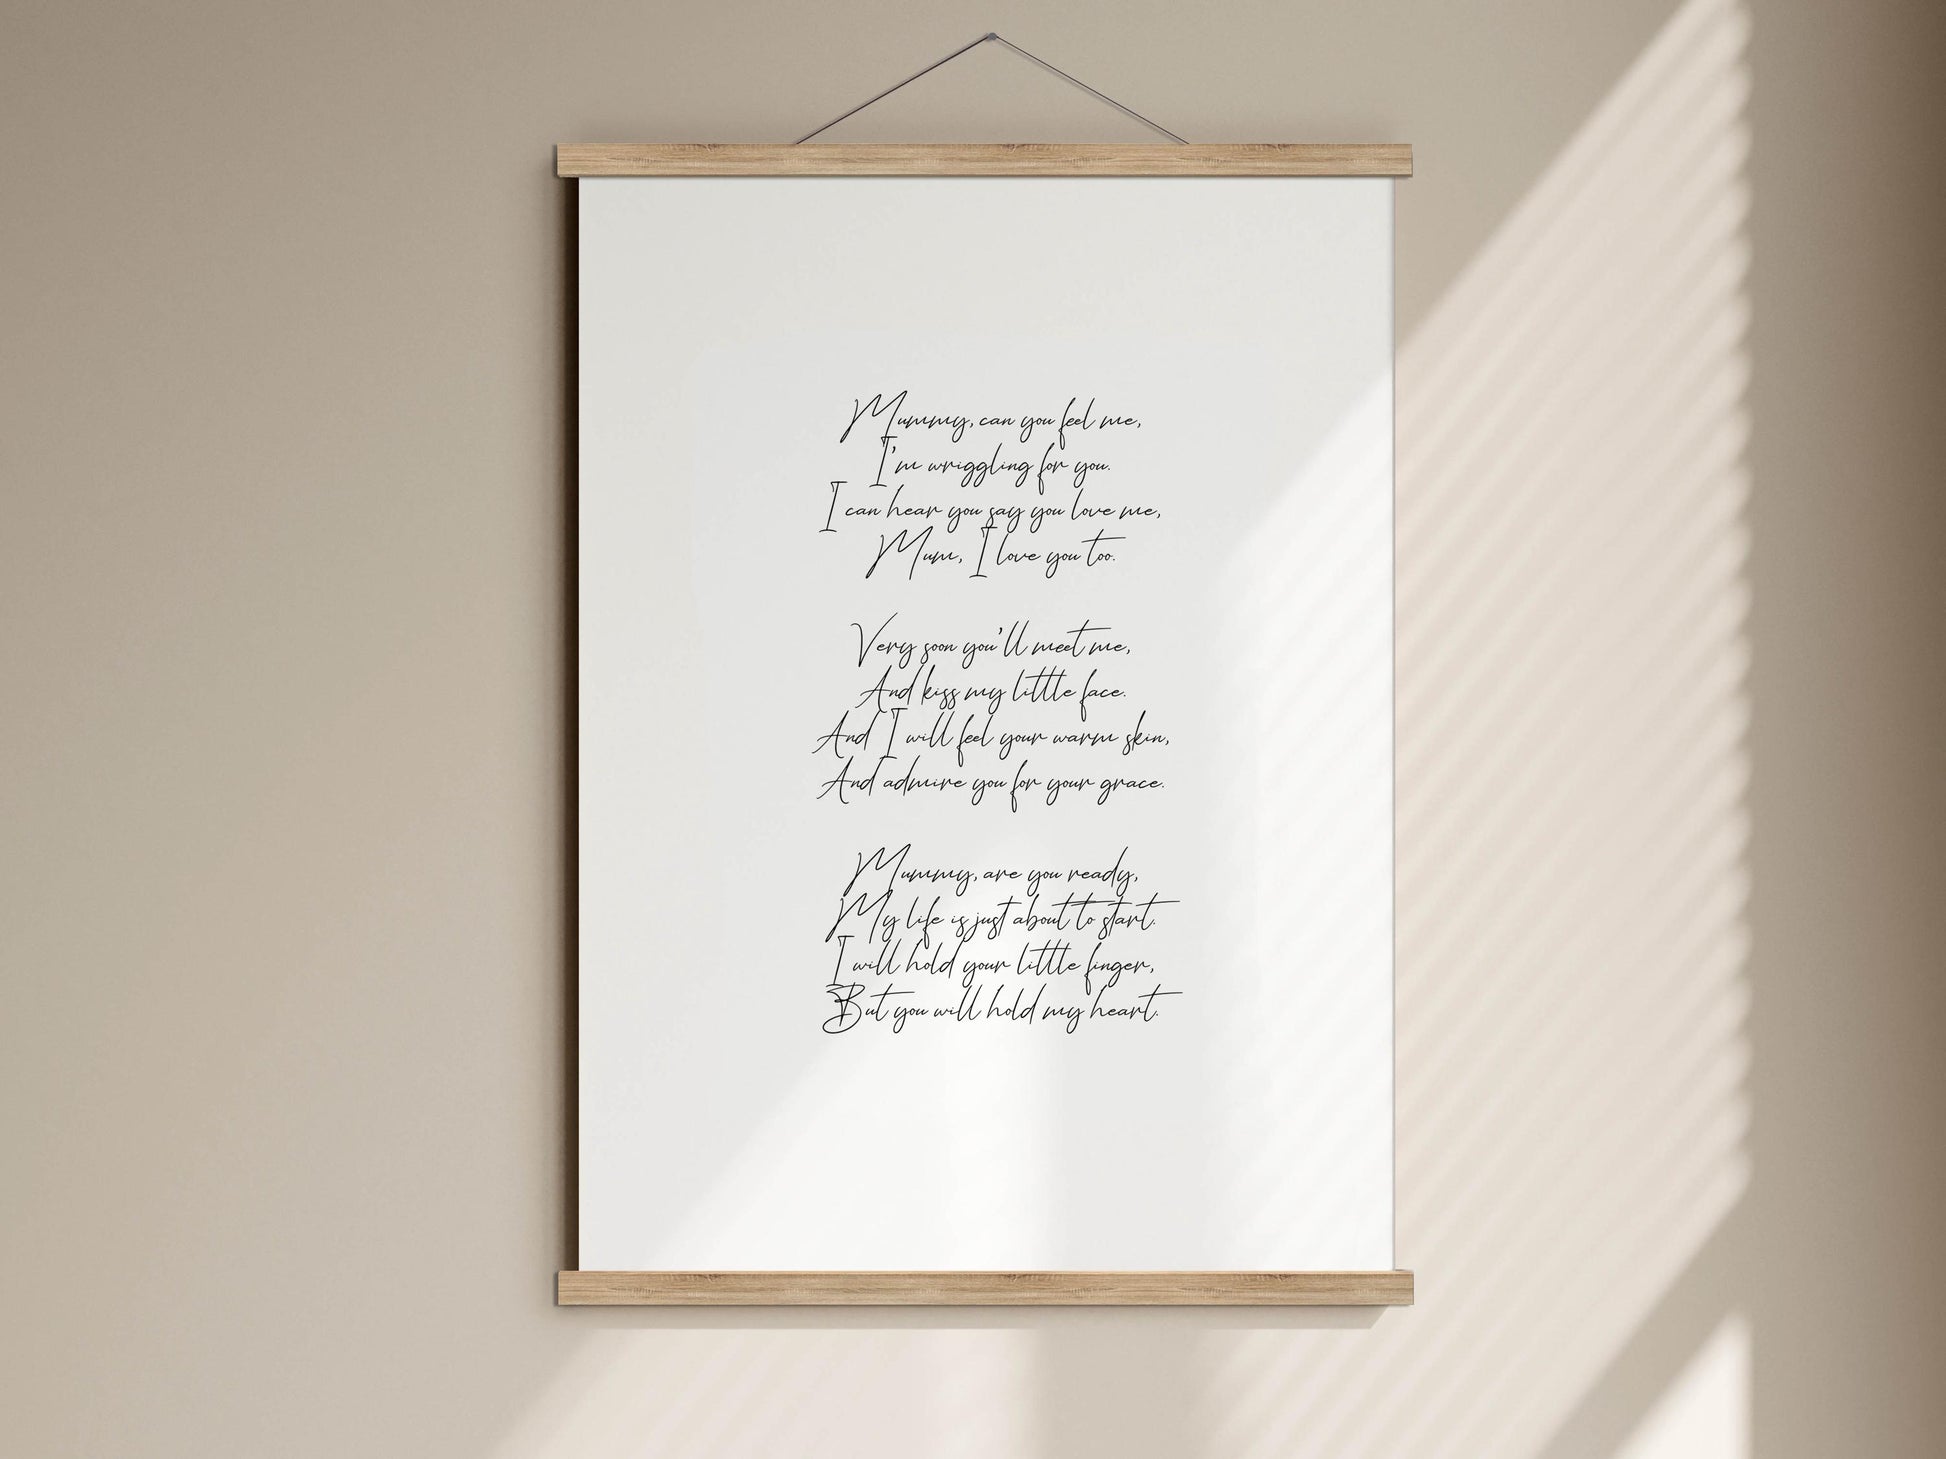 Mummy, can you feel me,
I'm wriggling for you.
I can hear you say you love me,
Mum, I love you too.
Very soon you'll meet me,
And kiss my little face.
And I will feel your warm skin,
And admire you for your grace.
Mummy, are you ready,
My life is just about to start.
I will hold your little finger,
But you will hold my heart.